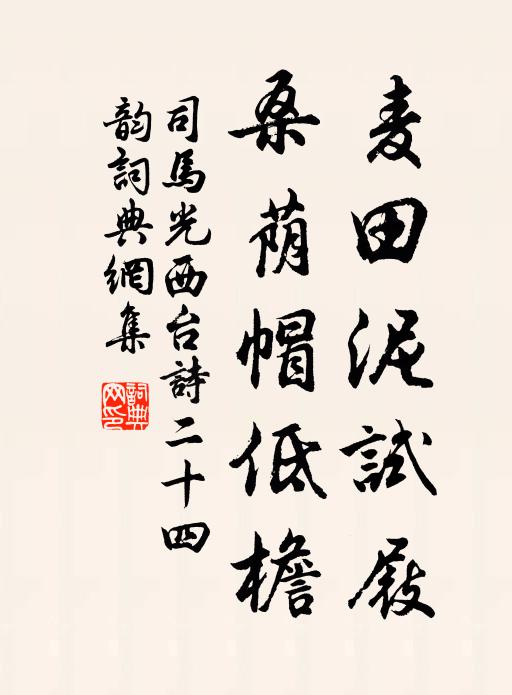 麦田泥試屐
桑荫帽低檐
司馬光西台詩二十四
韵詞典網集
詞典网印